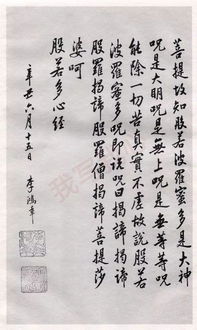 菩提故知般若波羅蜜多是大神
咒是大明咒是無上咒是無等等咒
能除一切苦真實不虛故說般若
波羅蜜多咒即說咒曰揭諦揭諦
般羅揭諦般羅僧揭諦菩提莎
婆呵
般若多心經
辛丑六月十五日
李鴻章